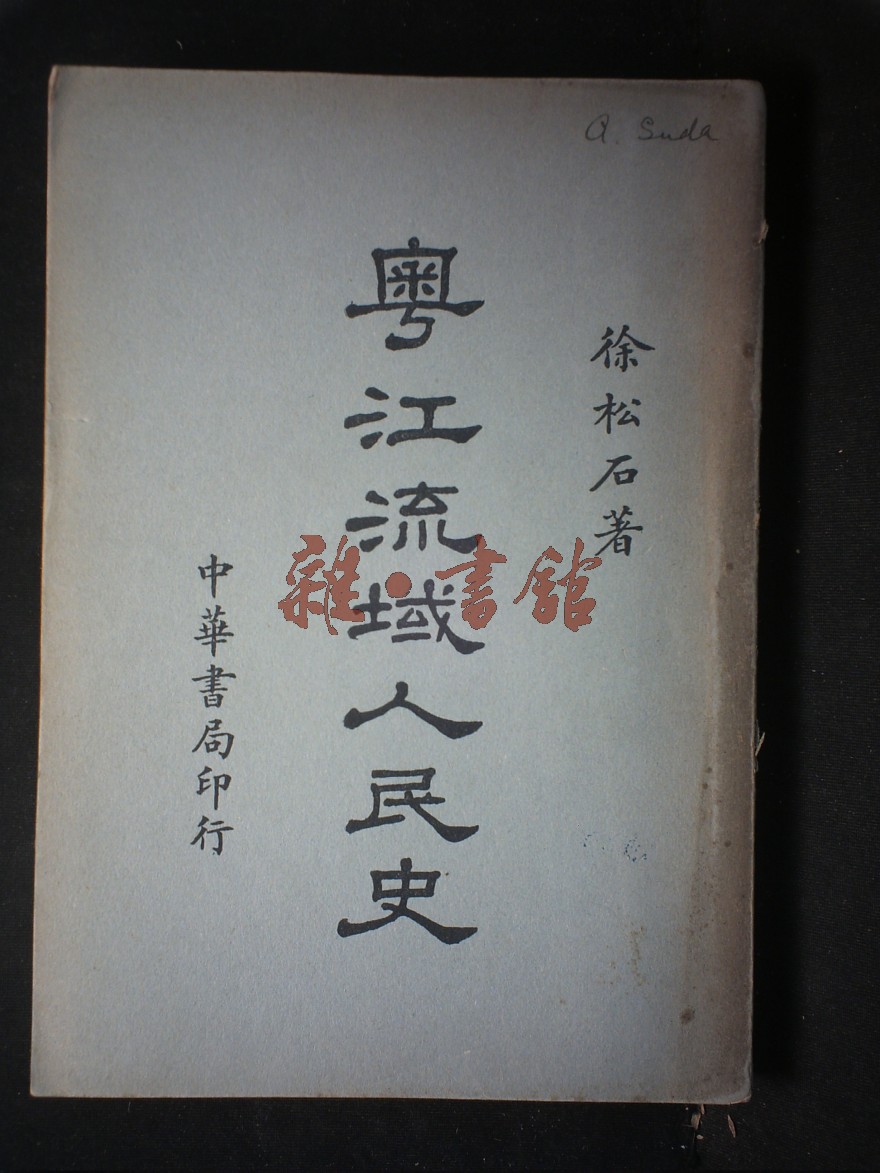 A. Suda
徐松石著
粤江流域人民史
中華書局印行
雜·書館